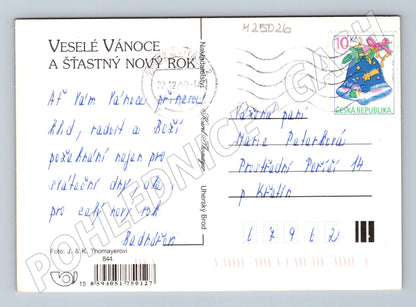 425026
VESELÉ VÁNOCE
A ŠŤASTNÝ NOVÝ ROK
10 Kč
ČESKÁ REPUBLIKA
Ať Vám Vánoce přinesou
klid, radost a Boží
požehnání nejen pro
sváteční dny, ale i
pro celý nový rok
Vážená paní
Marie
Prostřední Poříčí 14
p. Křetín
6 7 9 6 2
Nakladatelství
Uherský Brod
Foto: J. & K. Thomayerovi
844
15
8 594051 750127
POHLEDNICE - GASH